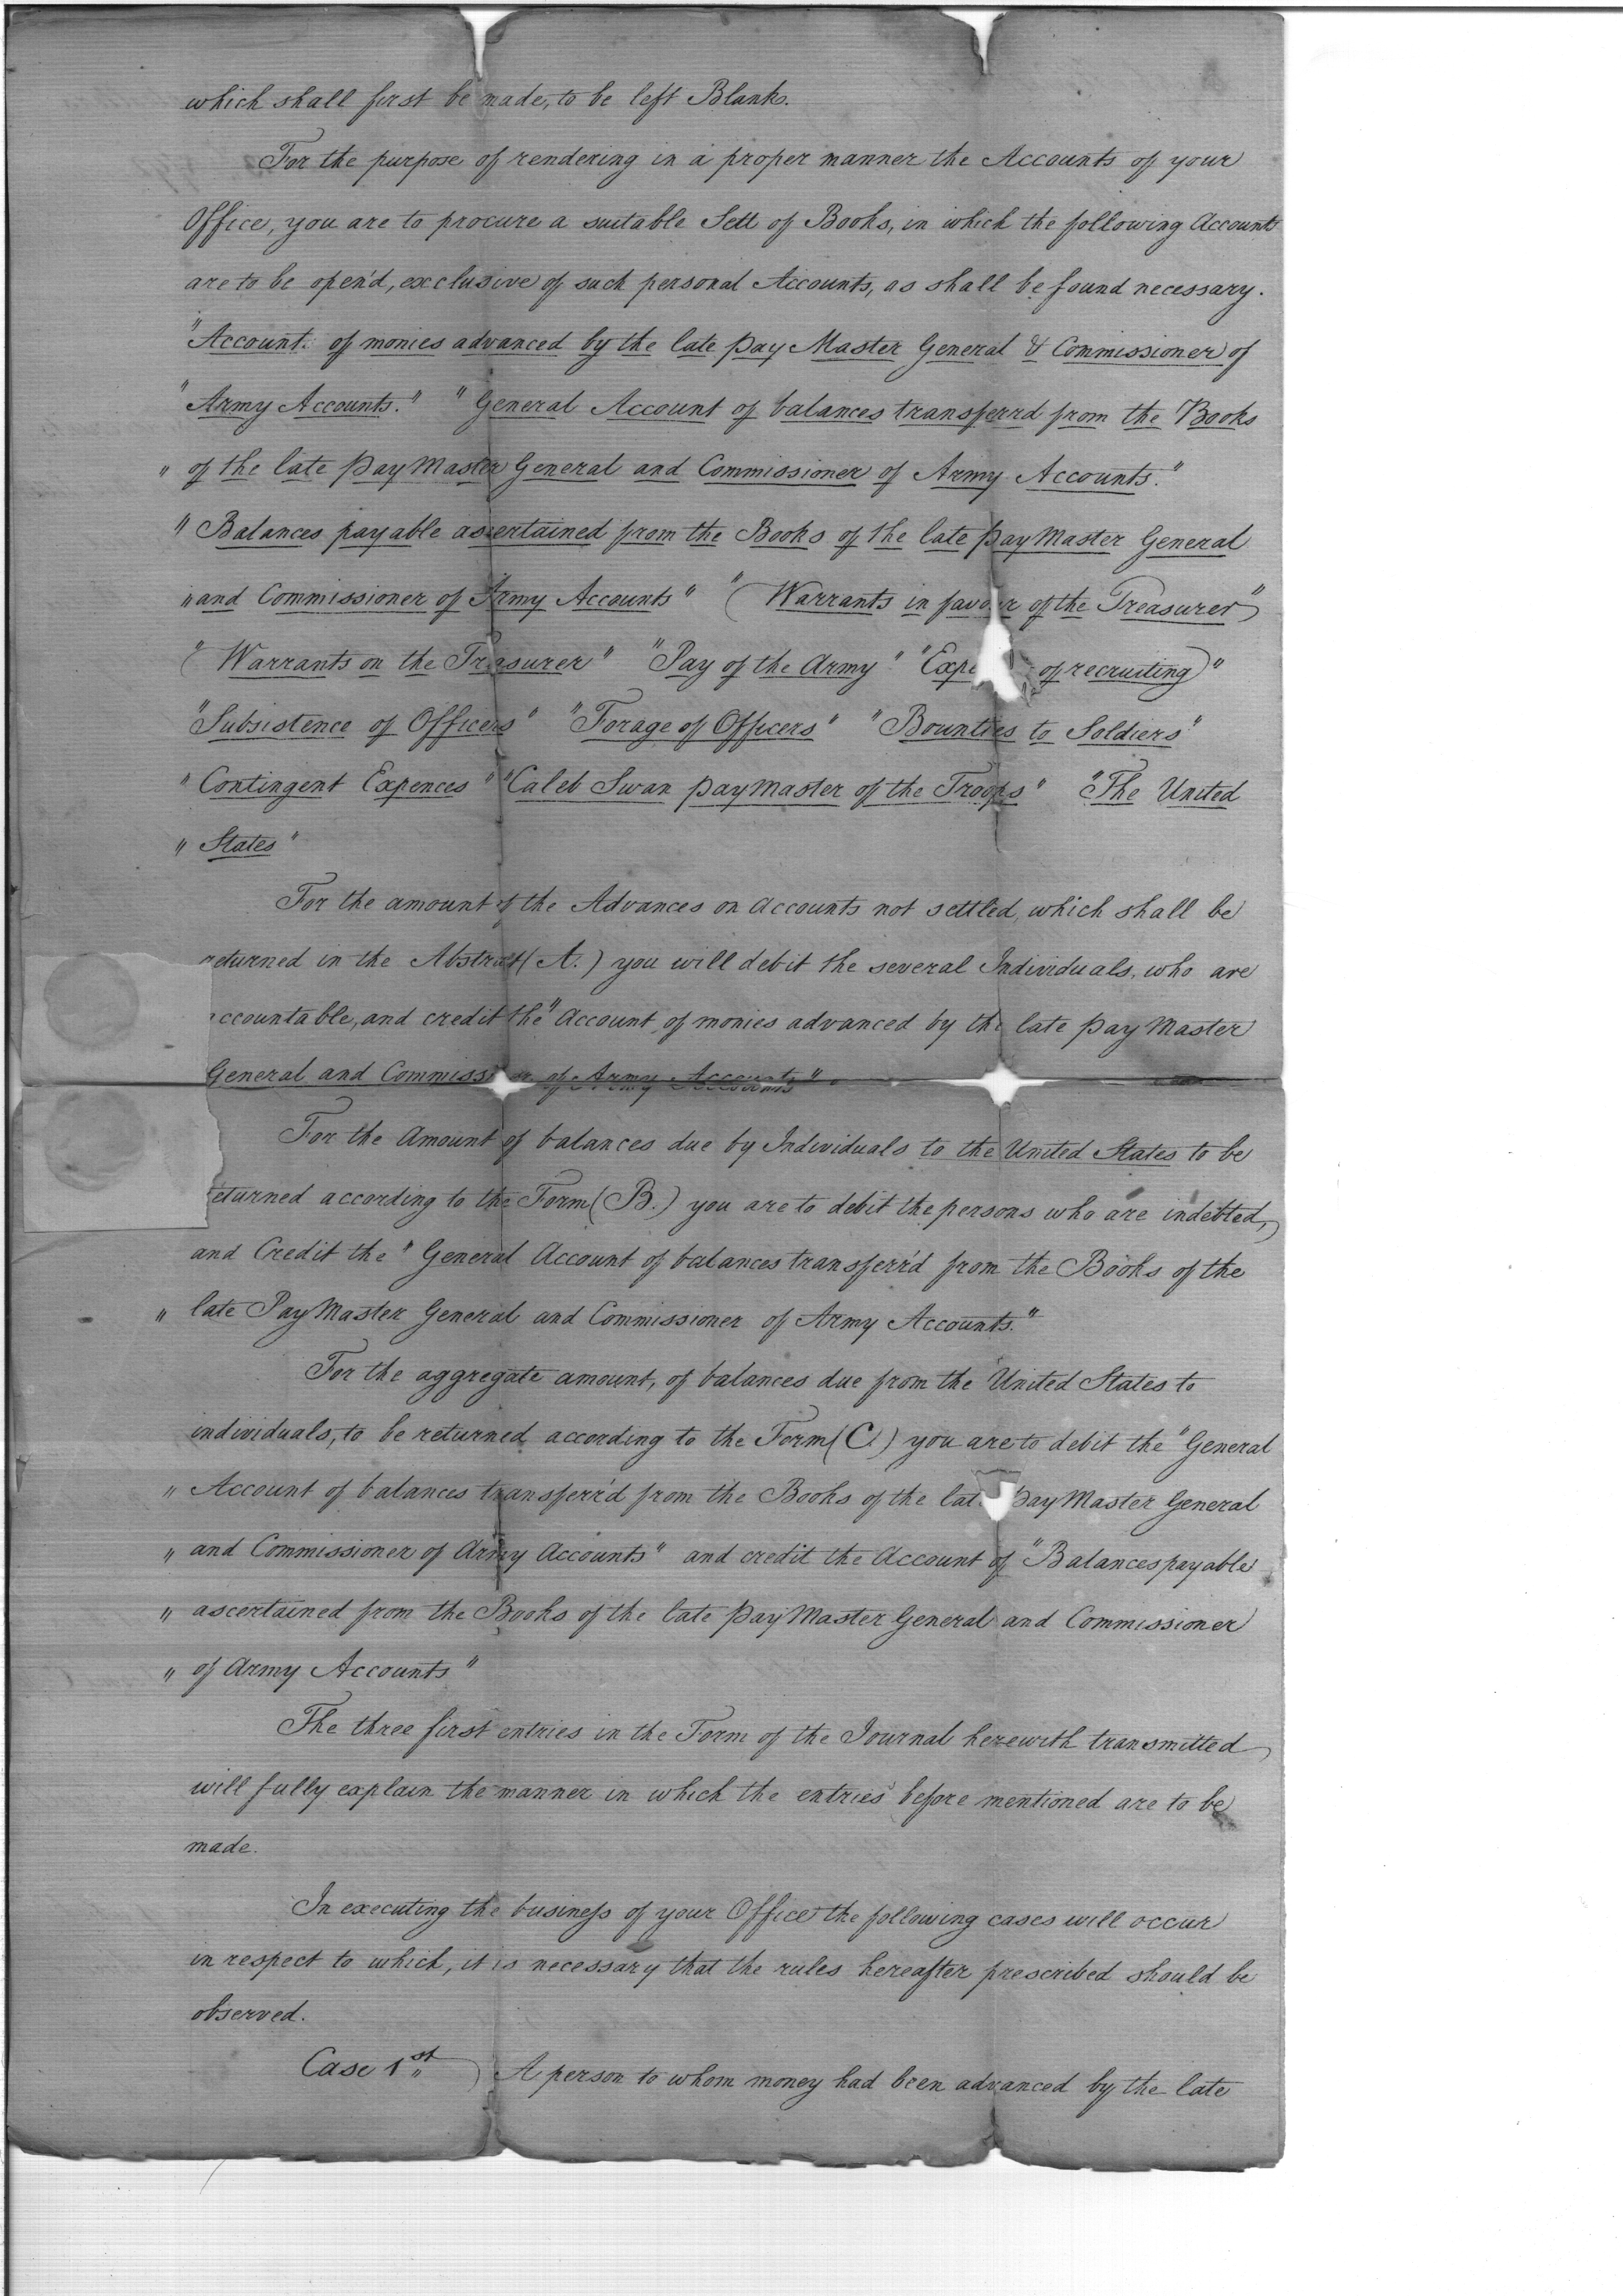 which shall first be made, to be left Blank.
For the purpose of rendering in a proper manner the Accounts of your
Office, you are to procure a suitable Sett of Books, in which the following Accounts
are to be open'd, exclusive of such personal Accounts, as shall be found necessary.
"Account. of monies advanced by the late Pay Master General & Commissioner of
"Army Accounts." "General Account of balances transferrd from the Books
" of the late Pay Master General and Commissioner of Army Accounts."
" Balances payable ascertained from the Books of the late Pay Master General
" and Commissioner of Army Accounts" "Warrants in favour of the Treasurer"
"Warrants on the Treasurer" "Pay of the Army" "Expe of recruiting"
"Subsistence of Officers" "Forage of Officers" "Bounties to Soldiers"
" Contingent Expences" "Caleb Swan Pay Master of the Troops" "The United
" States"
For the amount of the Advances on Accounts not settled, which shall be
returned in the Abstract (A.) you will debit the several Individuals, who are
accountable, and credit the "Account of monies advanced by the late Pay Master
General and Commissioner of Army Accounts".
For the Amount of balances due by Individuals to the United States to be
returned according to the Form (B.) you are to debit the persons who are indebted,
and Credit the "General Account of balances transferr'd from the Books of the
" late Pay Master General and Commissioner of Army Accounts."
For the aggregate amount, of balances due from the United States to
individuals, to be returned according to the Form (C.) you are to debit the "General
" Account of balances transferr'd from the Books of the late Pay Master General
" and Commissioner of Army Accounts" and credit the Account of "Balances payable
" ascertained from the Books of the late Pay Master General and Commissioner
" of Army Accounts"
The three first entries in the Form of the Journal herewith transmitted
will fully explain the manner in which the entries before mentioned are to be
made.
In executing the business of your Office the following cases will occur
in respect to which, it is necessary that the rules hereafter prescribed should be
observed.
Case 1st A person to whom money had been advanced by the late